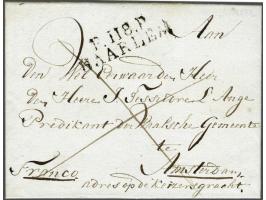 P.118.P
HAARLEM
Aan
Den Wel Eerwaarden Heer
den Heere J. Tissedre L'Ange
Predikant der Waalsche Gemeente
te
Franco Amsterdam,
adres op de Keizersgracht.